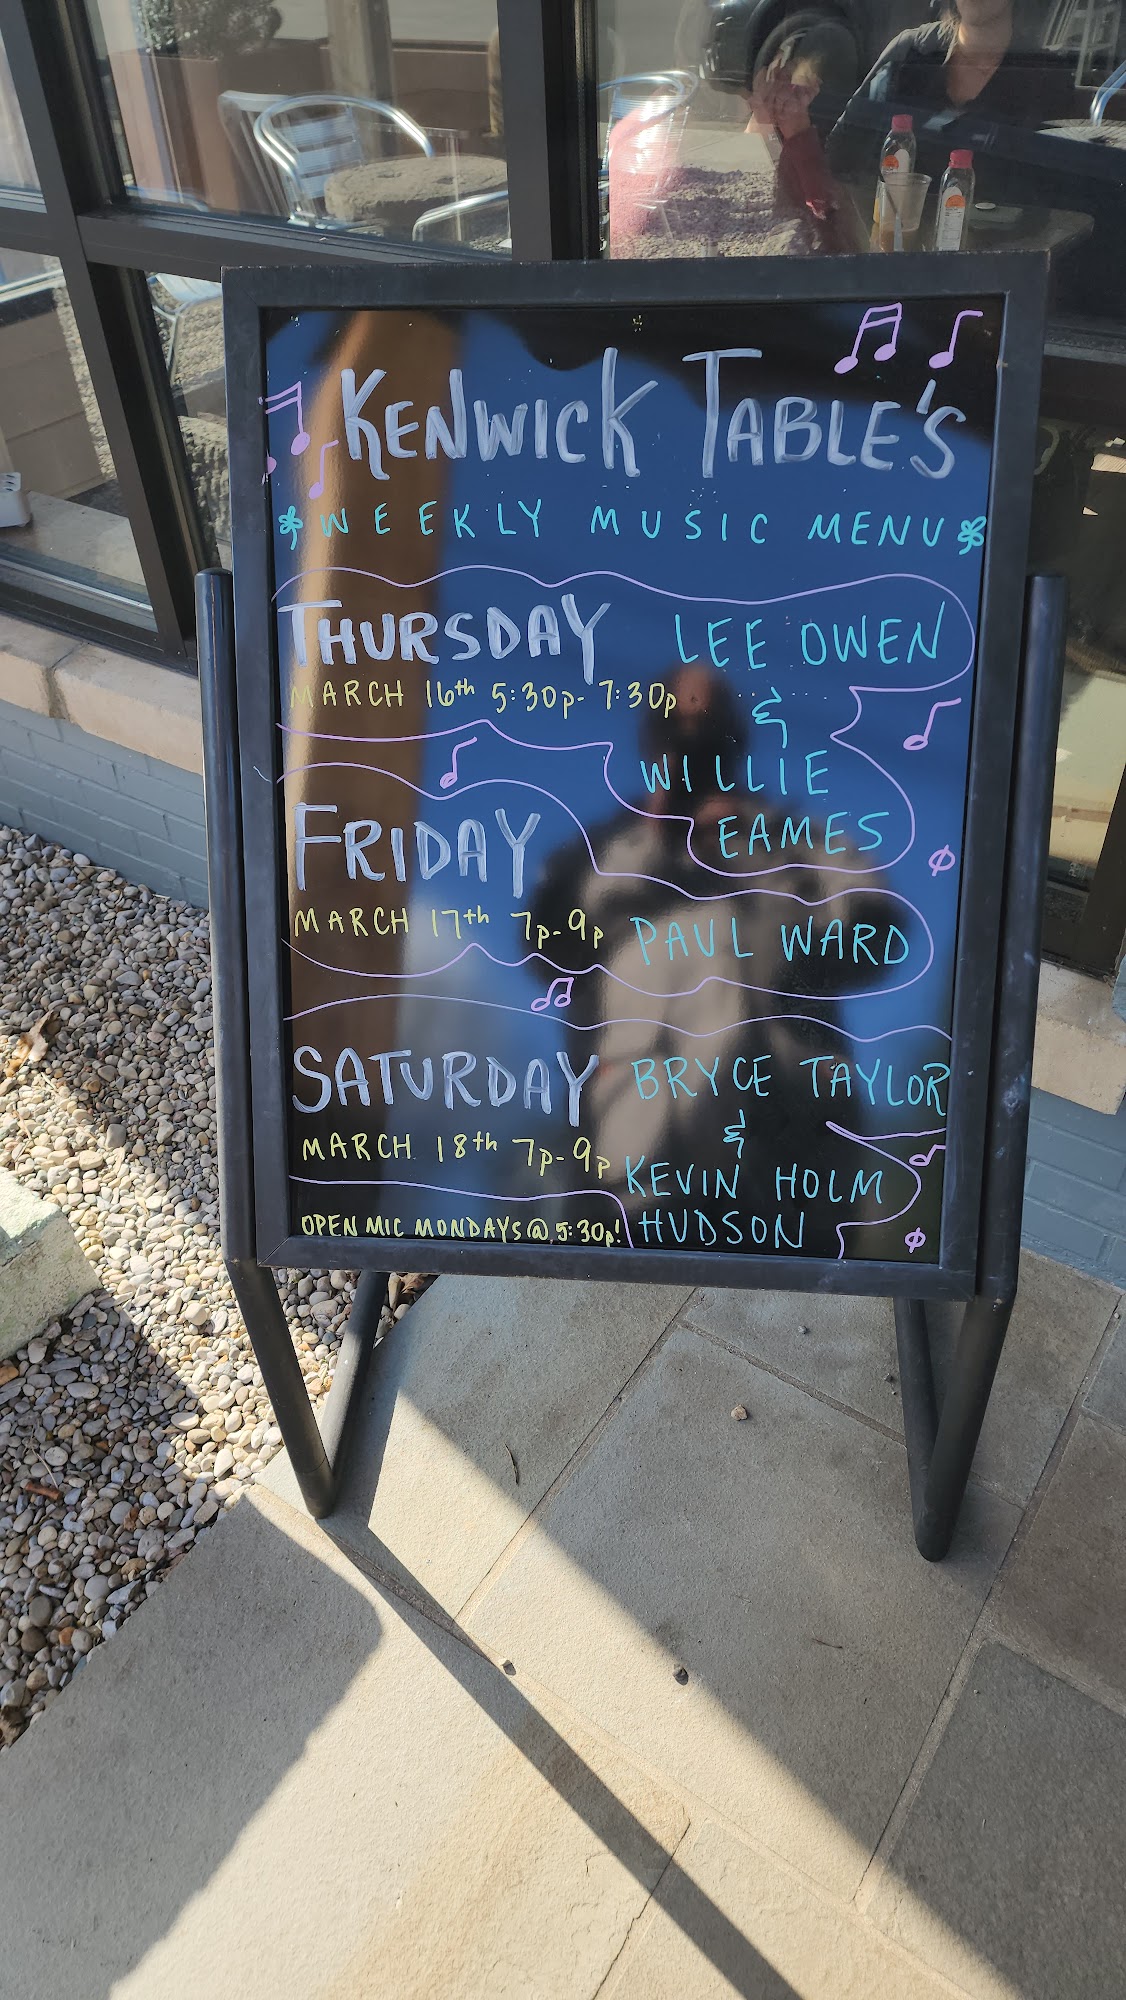 KENWICK TABLE'S
WEEKLY MUSIC MENU
THURSDAY
MARCH 16th 5:30p- 7:30p
LEE OWEN
&
WILLIE
EAMES
FRIDAY
MARCH 17th 7p-9p
PAUL WARD
SATURDAY
MARCH 18th 7p-9p
BRYCE TAYLOR
&
KEVIN HOLM
HUDSON
OPEN MIC MONDAYS @ 5:30p!